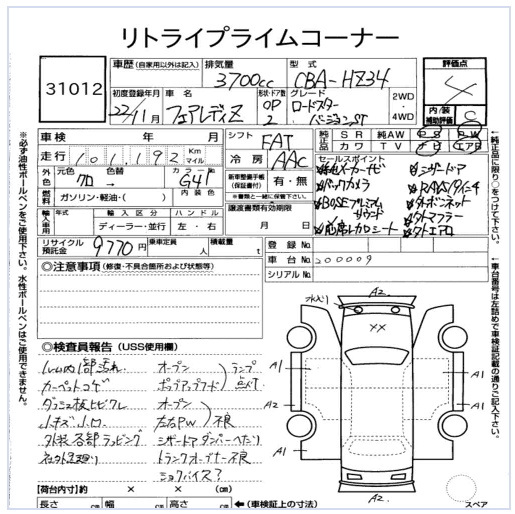 リトライプライムコーナー
31012
車歴 (自家用以外は記入)
排気量
型式
評価点
3700cc
CBA-HZ34
4
初度登録年月
車名
形状・ドア数
グレード
2WD
・
4WD
22/11月
フェアレディZ
OP
2
ロードスター
バージョンST
内/装
補助評価
車検 年 月
シフト
FAT
純正品
SR
純AW
PS
PW
カワ
TV
ナビ
エアB
走行
101,192
Km
マイル
冷房
AAC
セールスポイント
外色
元色
色替
カラーNo
内装色
クロ
G41
新車整備手帳
(保証書付)
有・無
※書類と一緒に保管下さい。
燃料
ガソリン・軽油・( )
譲渡書類有効期限
月 日
バックカメラ
BOSEプレミアム
サウンド
シザードア
社外マフラー
輸入車用
年式
輸入区分
ハンドル
ディーラー・並行
左・右
リサイクル
預託金
9770円
乗車定員
人
積載量
t
登録No
車台No
200009
シリアルNo
◎注意事項 (修復・不具合箇所および状態等)
◎検査員報告 (USS使用欄)
ルーム内部汚れ
オープン
カーペットコゲ
ポップアップフード
ランプ
点灯
ダッシュ板ヒビワレ
オープン
小キズ 小凹
左右PW
不良
外装各部ラッピング
シザードアダンパーへたり
トランクオープナー不良
ショックバイス?
【荷台内寸】約 × × (cm)
長さ cm
幅 cm
高さ cm
←(車検証上の寸法)
水入り
A2
XX
A1
A1
A2
A1
A1
A2
スペア
※必ず油性ボールペンをご使用下さい。水性ボールペンはご使用できません。
←純正品に限り○をつけて下さい。
←車台番号は左詰めで車検証記載の通りご記入下さい。